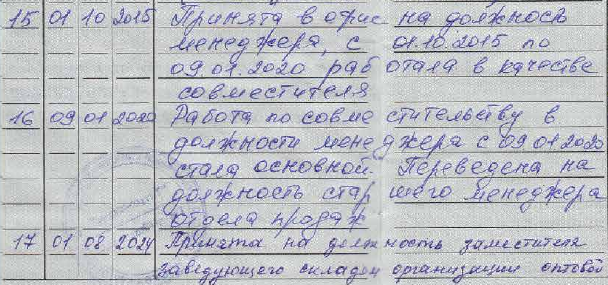 15 01 10 2015 Принята в офис на должность
менеджера, с 01.10.2015 по
09.01.2020 работала в качестве
совместителя
16 09 01 2020 Работа по совместительству в
должности менеджера с 09 01 2020
стала основной. Переведена на
должность старшего менеджера
отдела продаж
17 01 08 2024 Принята на должность заместителя
заведующего складом организации оптовой